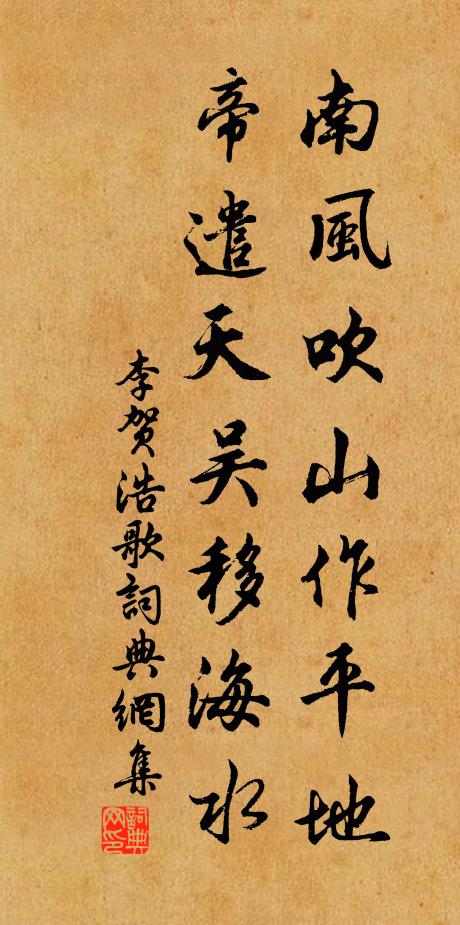 南風吹山作平地
帝遣天吴移海水
李贺浩歌詞典網集
詞典网印